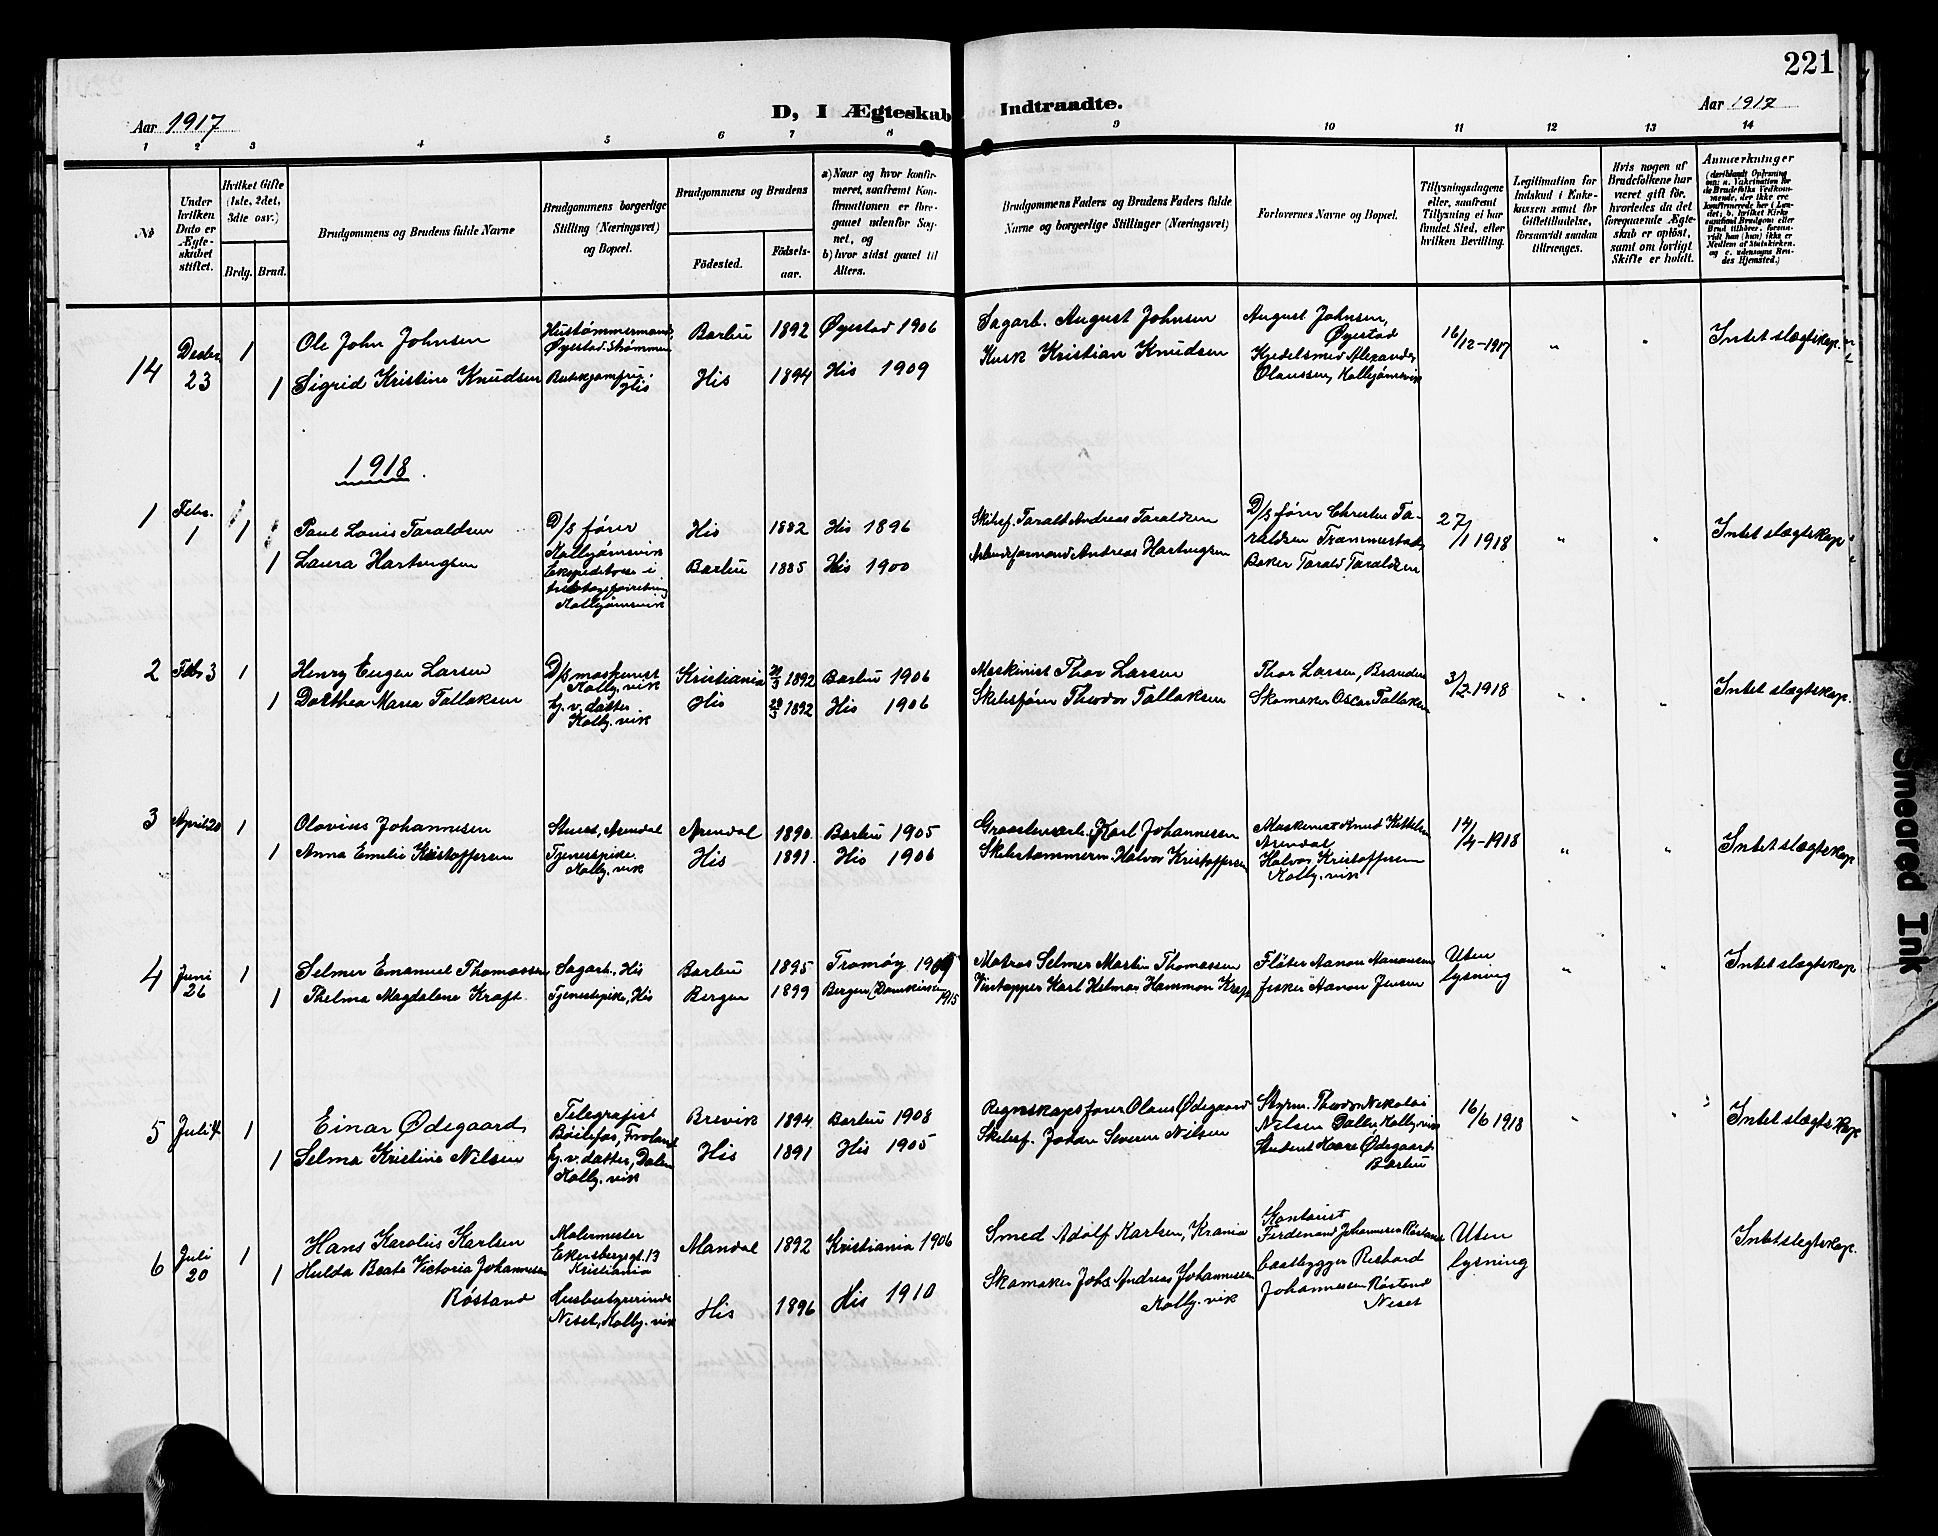 221
D, I Ægteskab Indtraadte.
Aar 1917
Aar 1917
1 2 3 4 5 6 7 8 9 10 11 12 13 14
No
Under hvilken Dato er Ægteskabet stiftet.
Hvilket Gifte (1ste, 2det, 3die osv.)
Brdg. Brud.
Brudgommens og Brudens fulde Navne
Brudgommens borgerlige Stilling (Næringsvei) og Bopæl.
Brudgommens og Brudens
Födested.
Födselsaar.
a) Naar og hvor konfirmeret, saafremt Konfirmationen er foregaaet udenfor Sognet, og
b) hvor sidst gaaet til Alters.
Brudgommens Faders og Brudens Faders fulde Navne og borgerlige Stillinger (Næringsvei)
Forlovernes Navne og Bopæl.
Tillysningsdagene eller, saafremt Tillysning ei har fundet Sted, efter hvilken Bevilling.
Legitimation for Indskud i Enkekassen samt for Giftetilladelse, forsaavidt saadan tiltrænges.
Hvis nogen af Brudefolkene har været gift för, hvorledes da det foregaaende Ægteskab er oplöst, samt om lovligt Skifte er holdt.
Anmærkninger
14 Decbr 23
1 Ole John Johnsen
Hustømmermand, Øyestad. Strømmen
Barbu 1892 Øyestad 1906
Sagarb. August Johnsen
August Johnsen, Øyestad
16/12-1917 " " Intet slægtskap.
1 Sigrid Kristine Knudsen
Butikjomfru. His
His 1894 His 1909
Kusk Kristian Knudsen
Kjedelsmed Alexander Olaussen, Kolbjørnsvik
1918.
1 Febr. 1
1 Paul Louis Taraldsen
D/S fører Kolbjørnsvik
His 1882 His 1896
Skibsf. Taralt Andreas Taraldsen
D/S fører Christen Taraldsen
27/1 1918 " " Intet slægtskap
1 Laura Hartvigsen
Kolbjørnsvik
Barbu 1885 His 1900
Arbeidsformand Andreas Hartvigsen
Baker Tarald Taraldsen
2 Febr 3
1 Henry Eugen Larsen
D/S maskinist Kolbj.vik
Kristiania 1892 Barbu 1906
Maskinist Thor Larsen
Thor Larsen, Branden
3/2-1918 " " Intet slægtskap.
1 Dorthea Maria Tallaksen
hj. v. datter Kolbj.vik
His 1892 His 1906
Skibsfører Theodor Tallaksen
Skomaker Oscar Tallaksen
3 April 20
1 Olavius Johannesen
Stuert, Arendal
Arendal 1890. Barbu 1905
Karl Johannesen
Maskinist Knud Kittelsen Arendal
14/4-1918 " " Intet slægtskap
1 Anna Emilie Kristoffersen
Tjenestpike. Kolbj.vik
His 1891. His 1906
Skibstømmerm Halvor Kristoffersen
Halvor Kristoffersen Kolbj.vik
4 Juni 26
1 Selmer Emanuel Thomassen
Sagarb., His
Barbu 1895 Tromøy 1909
Matros Selmer Martin Thomassen
Fløter Aanon Aanonsen
Uten lysning " " Intet slægtskap
1 Thelma Magdalene Kraft.
Tjenestpike, His
Bergen 1899 Bergen (Domkirken 1915
Vintapper Karl Helmar Hammon Kraft
fisker Aanon Jensen
5 Juli 4
1 Einar Ødegaard
Telegrafist Bøilefos, Froland
Brevik 1894 Barbu 1908
Regnskapsfører Olaus Ødegaard
Styrm. Theodor Nikolai Nilsen Dalen Kolbj.vik
16/6 1918 " " Intet slægtskap
1 Selma Kristine Nilsen
hj. v. datter, Dalen Kolbj.vik
His 1891 His 1905
Skibsf. Johan Severin Nilsen
Student Kaare Ødegaard. Barbu
6 Juli 20
1 Hans Karolius Karlsen
Malermester Ekersbergsgt. 13 Kristiania
Mandal 1892 Kristiania 1906
Smed Adolf Karlsen, Krania
Kontorist Ferdinand Johannesen Røstand
Uten lysning Intet slegtskap.
1 Hulda Beate Victoria Johannesen Røstand
Husbestyrerinde Neset, Kolbj.vik
His 1896 His 1910
Skomaker Johs Andreas Johannesen Kolbj.vik
baatbygger Richard Johannessen Røstand Neset
Smeared Ink